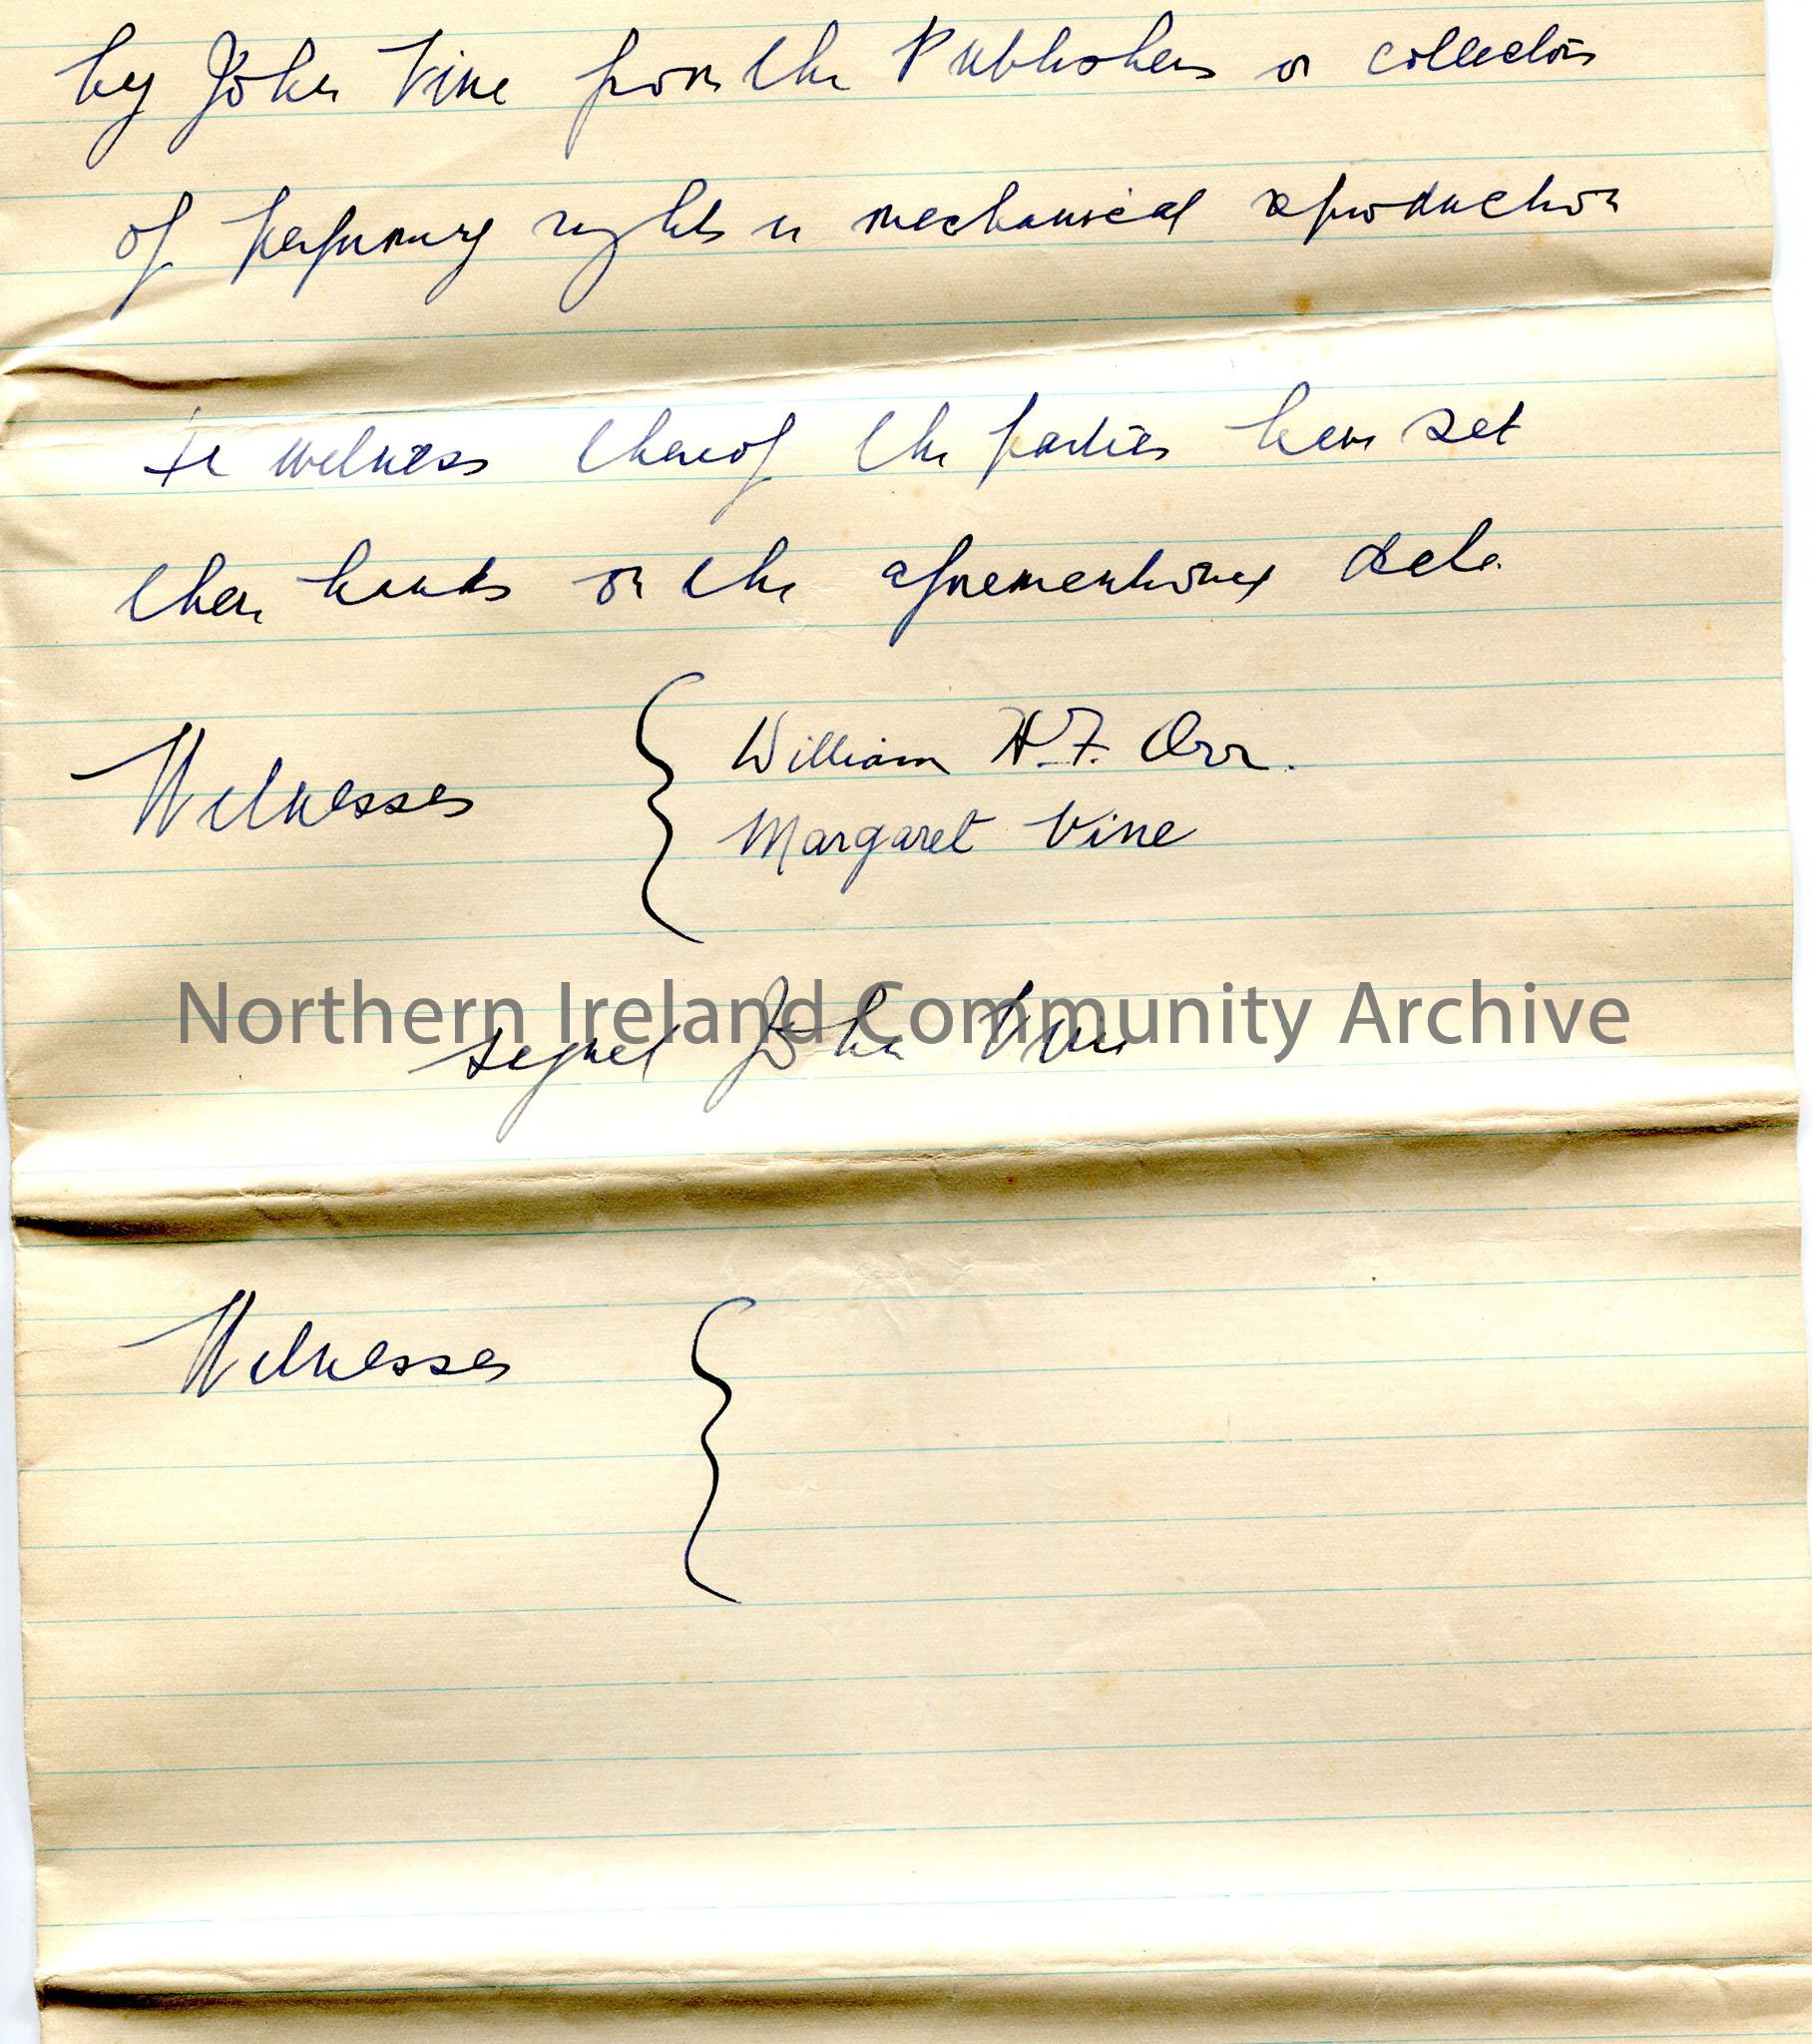 by John Vine from the Publishers or collectors
of performing rights or mechanical reproduction
In witness thereof the parties have set
their hands on the aforementioned date.
Witnesses { William H.F. Orr.
Margaret Vine
Northern Ireland Community Archive
signed John Vine
Witnesses {